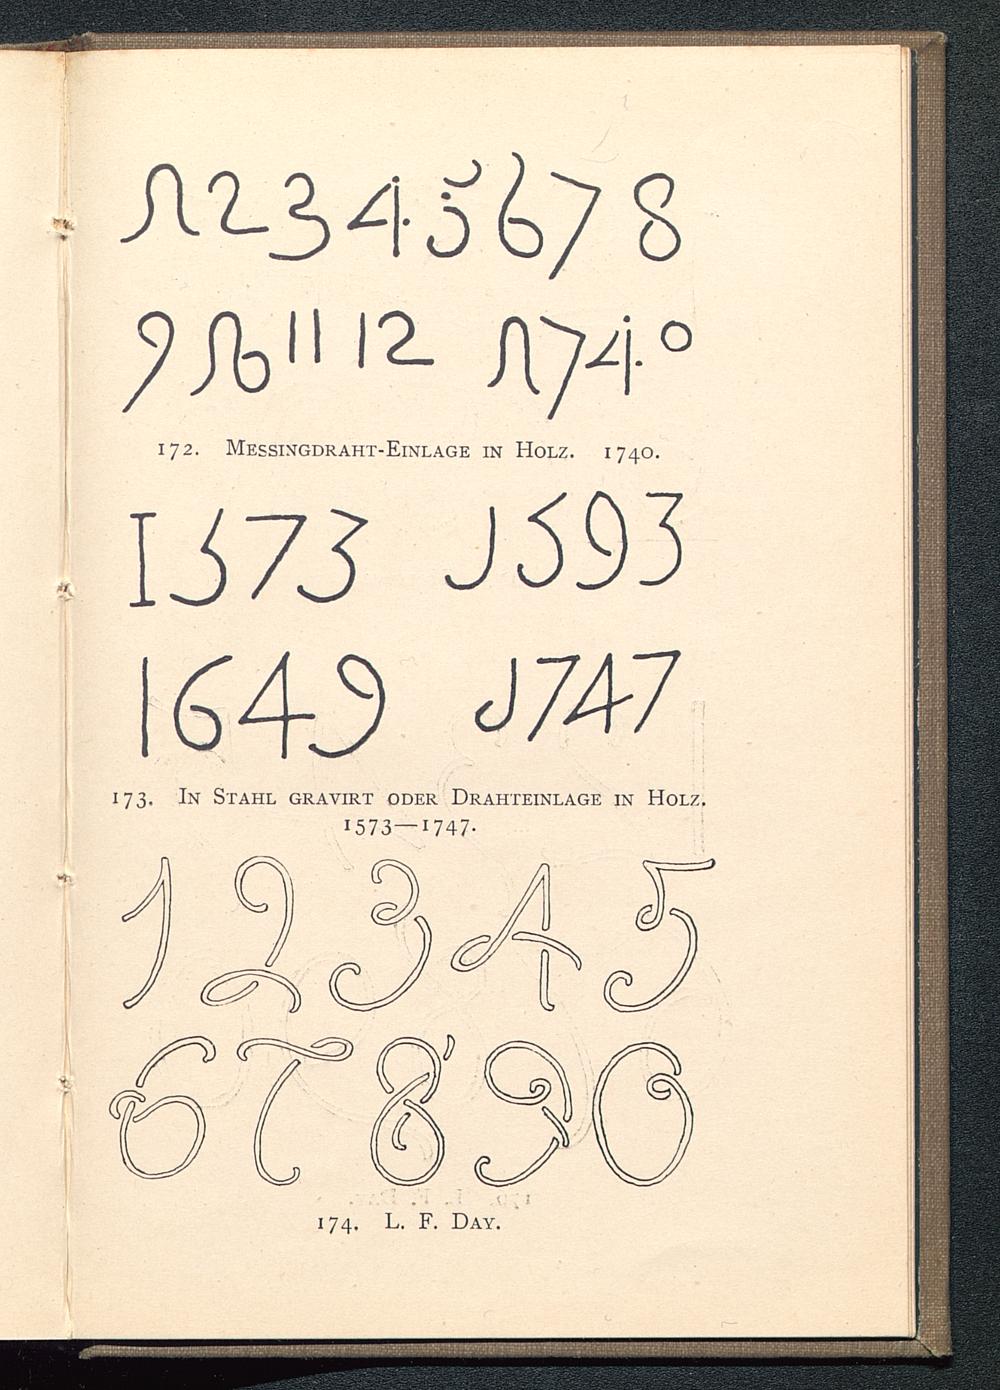 1 2 3 4 5 6 7 8
9 10 11 12 1740
172. Messingdraht-Einlage in Holz. 1740.
1573 1593
1649 1747
173. In Stahl gravirt oder Drahteinlage in Holz.
1573—1747.
1 2 3 4 5
6 7 8 9 0
174. L. F. Day.